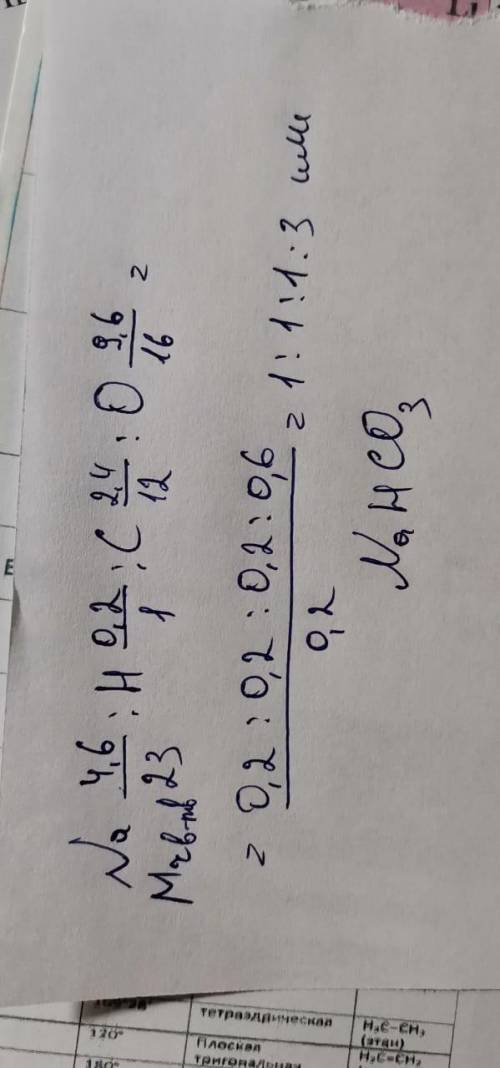 Na 4,6/23 : H 0,2/1 : C 2,4/12 : O 9,6/16 =
Mr в-тв
= 0,2 : 0,2 : 0,2 : 0,6 / 0,2 = 1 : 1 : 1 : 3 или
NaHCO₃
Li
E
тетраэдрическая
H₃C–CH₃
(этан)
120°
Плоская
тригональная
H₂C=CH₂
180°